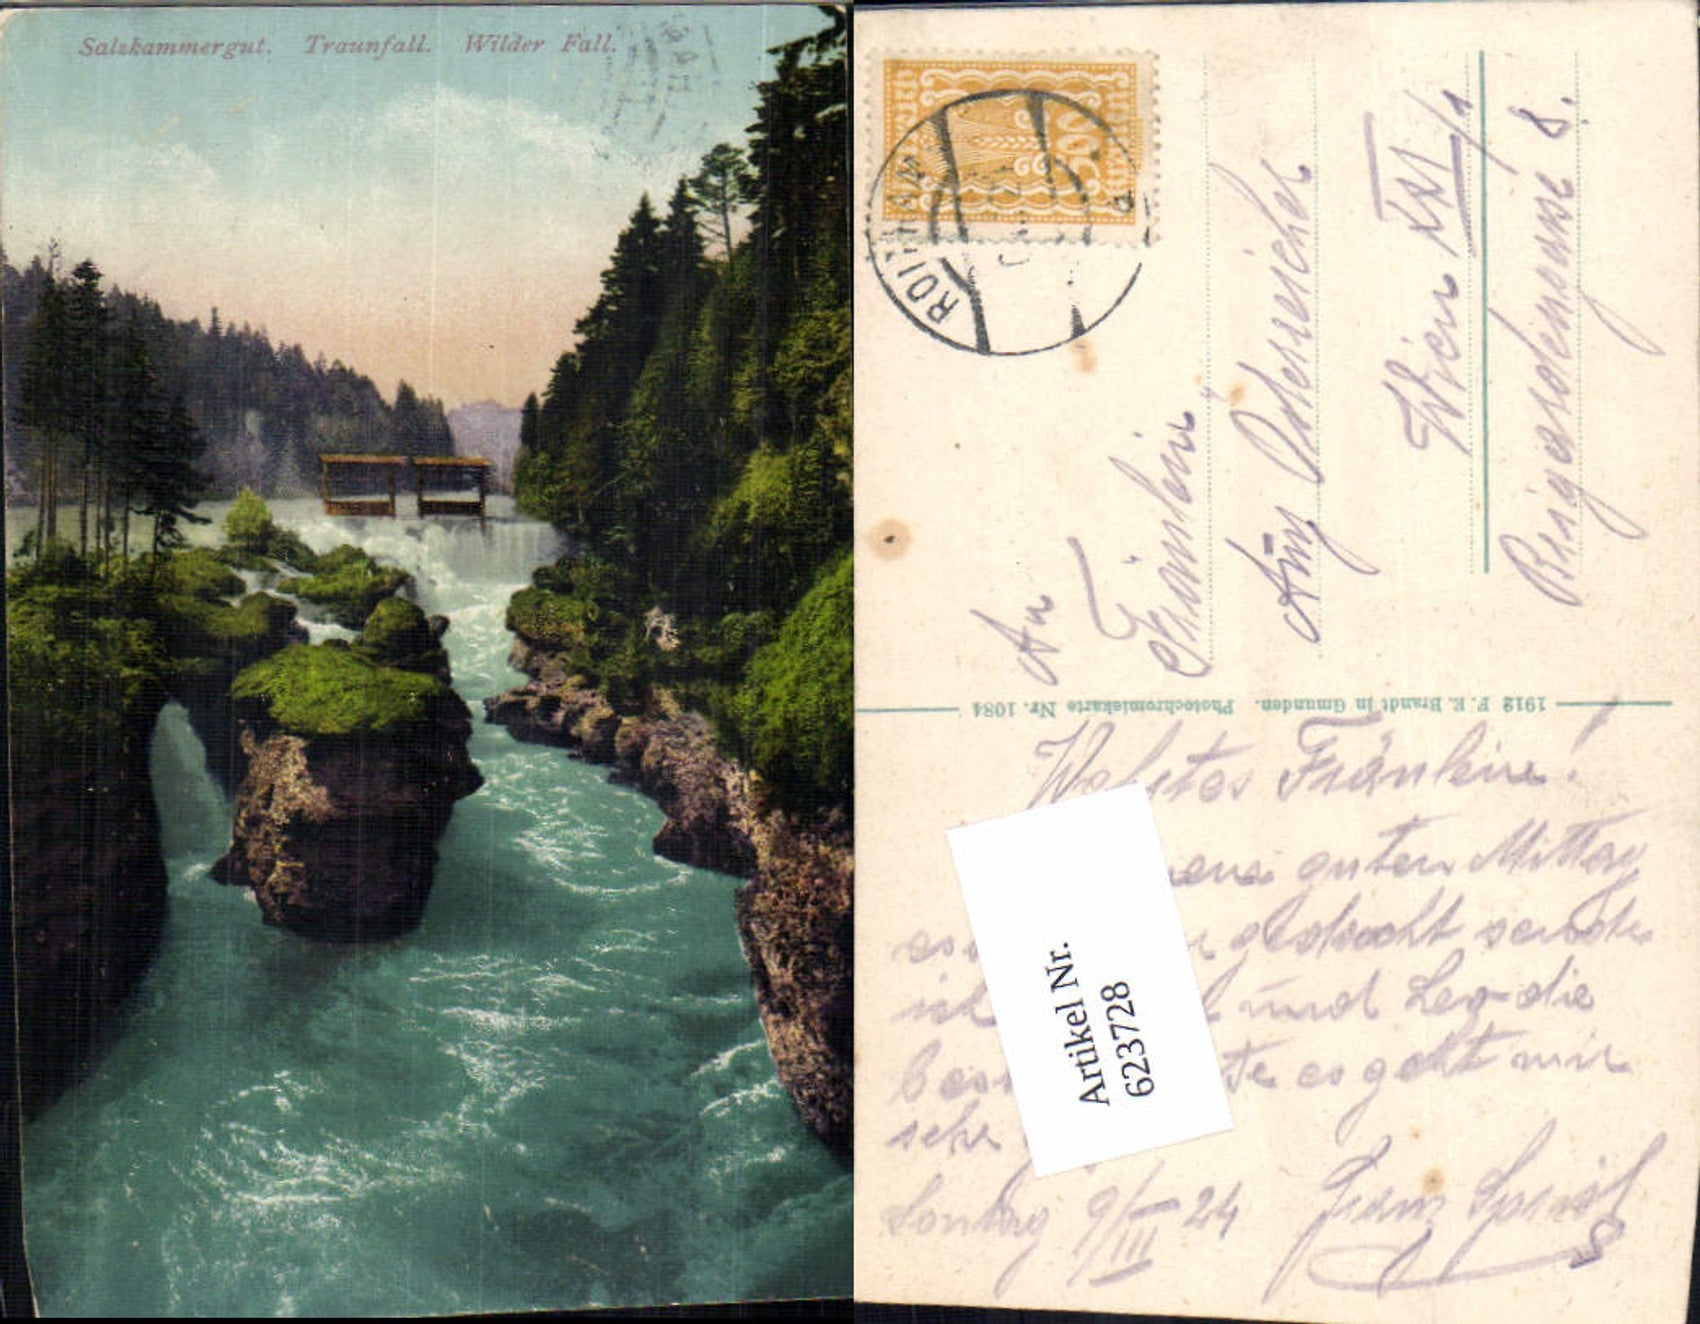 Salzkammergut. Traunfall. Wilder Fall.
500
ROITHAM
An
Fräulein
Österreicher
Wien XXI/1
8.
1912 F. E. Brandt in Gmunden. Photochromiekarte Nr. 1084
Wehrtes Fräulein!
guten Mittag
gedacht sende
ich und Leo die
Bes te es geht mir
sehr
Sontag 9/III 24 Franz
Artikel Nr.
623728